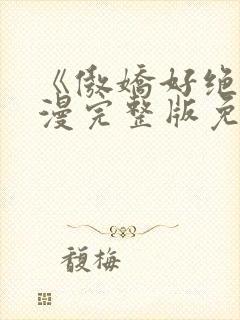 《傲娇好绝
漫完整版免
馥梅